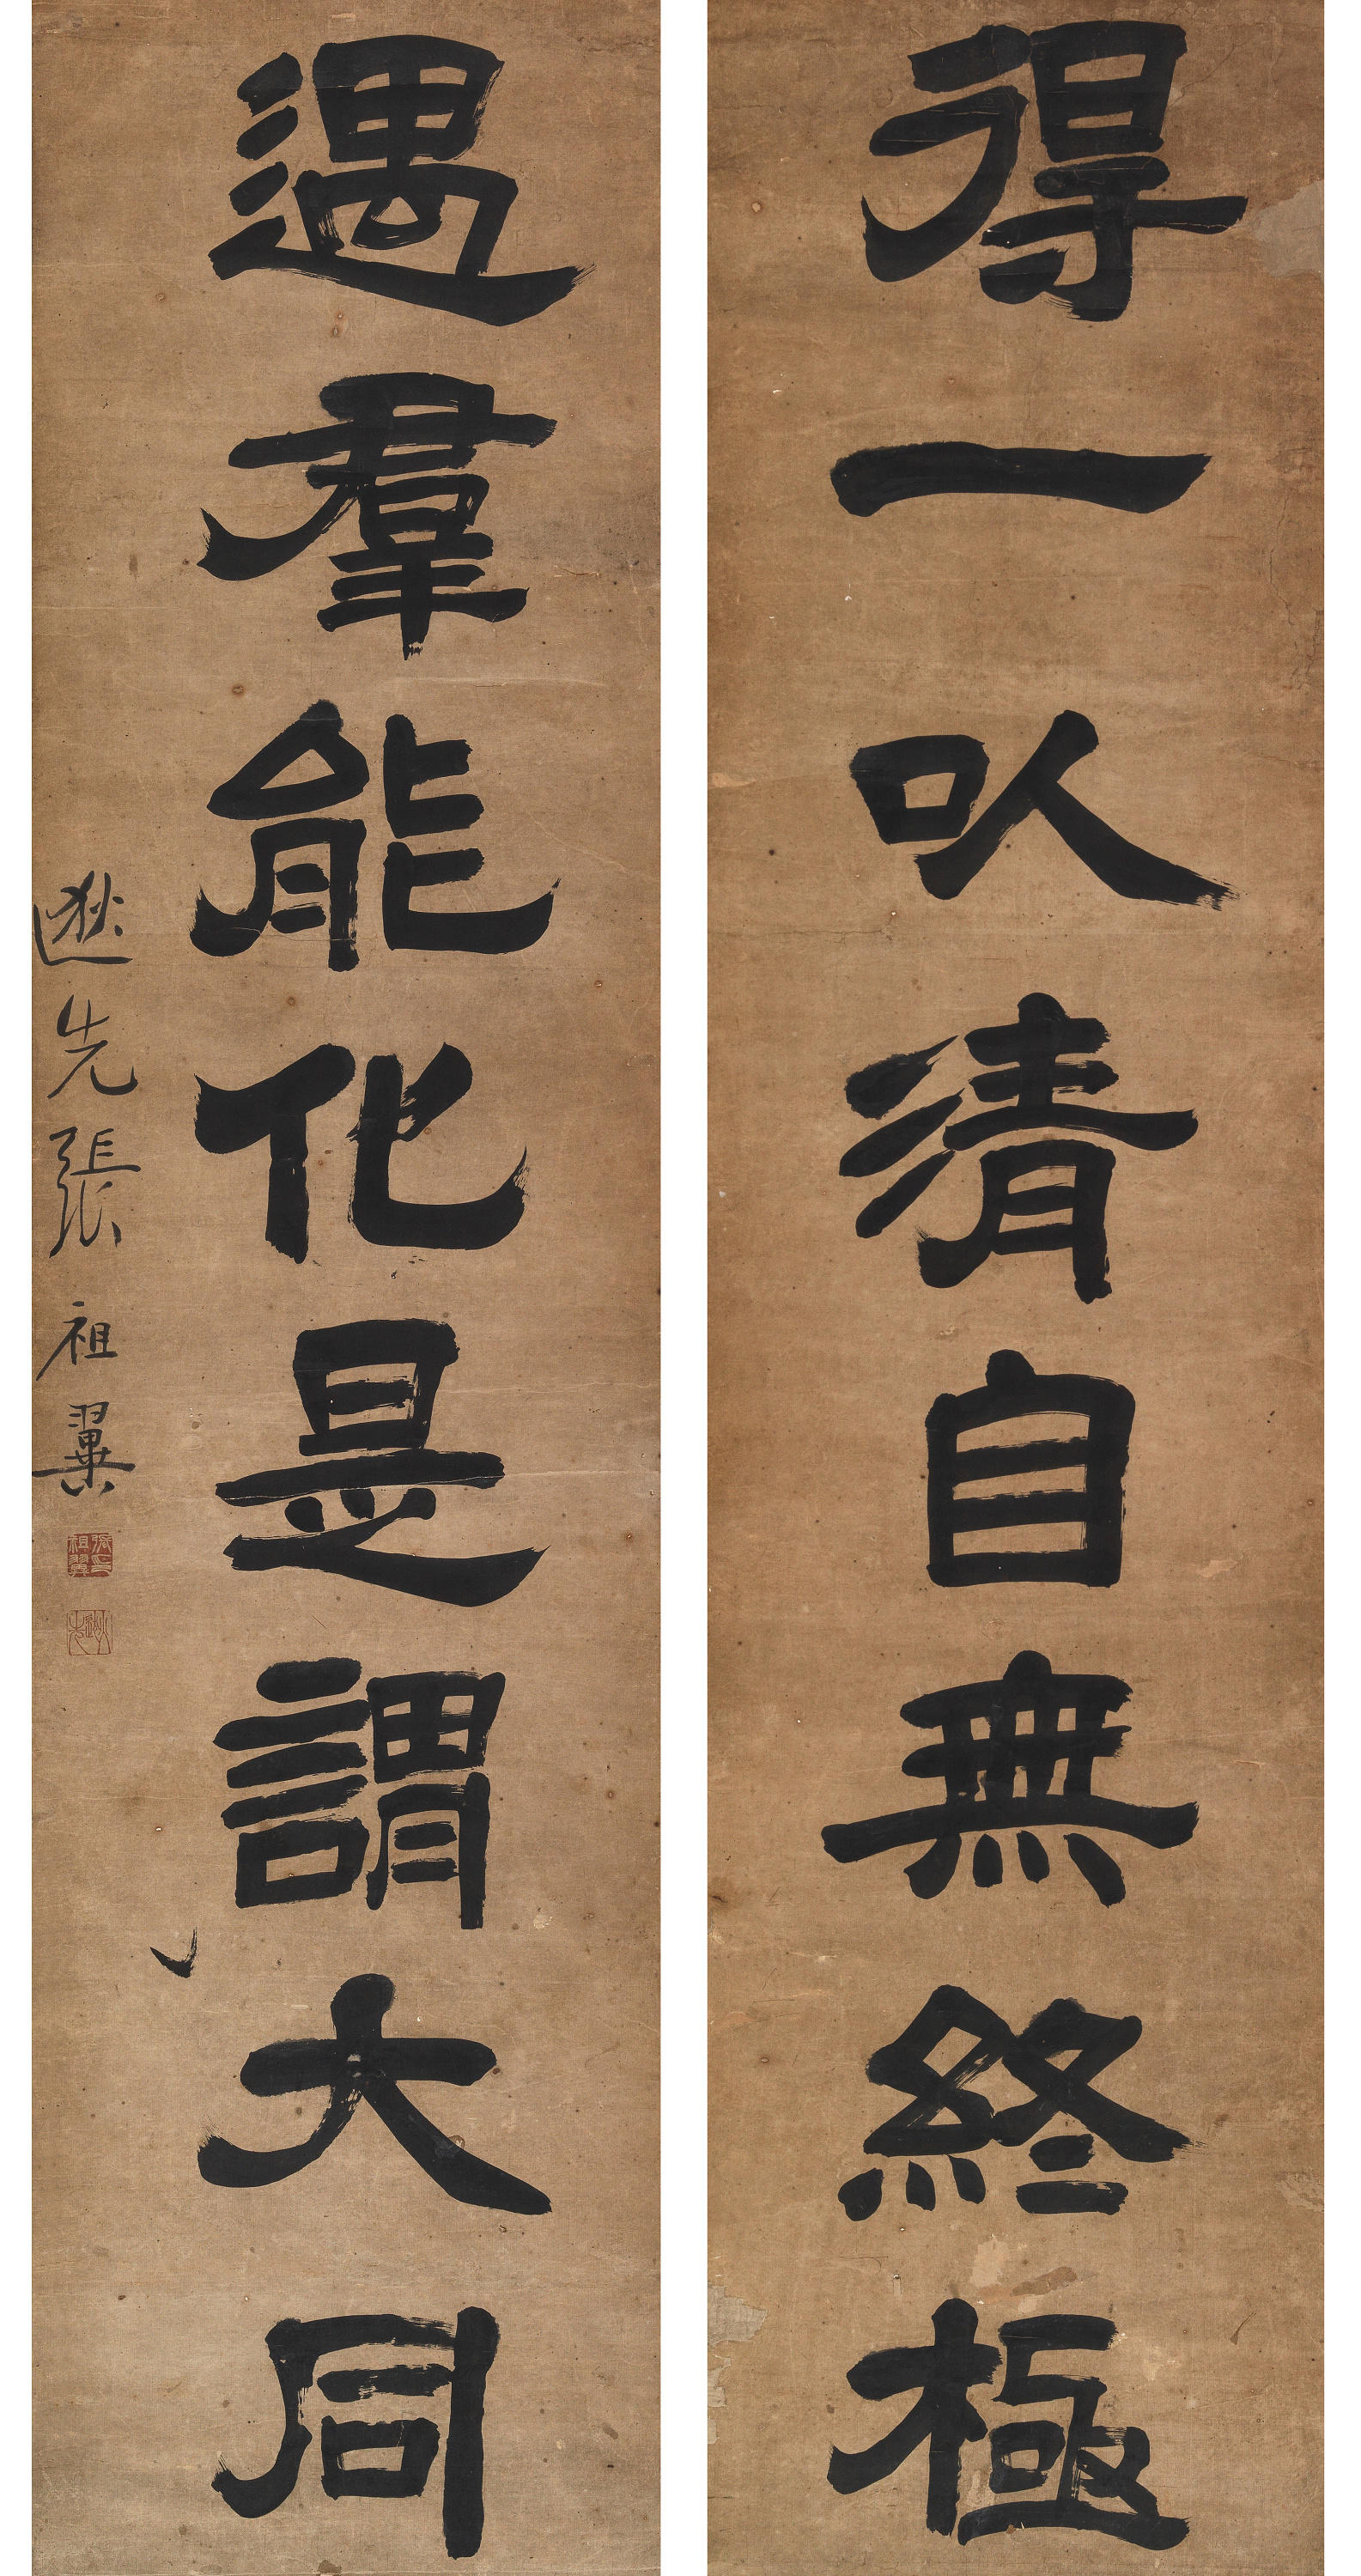 得一㕥清自無終極
遇羣能化是謂大同
逖先張祖翼
張祖翼印
逖先